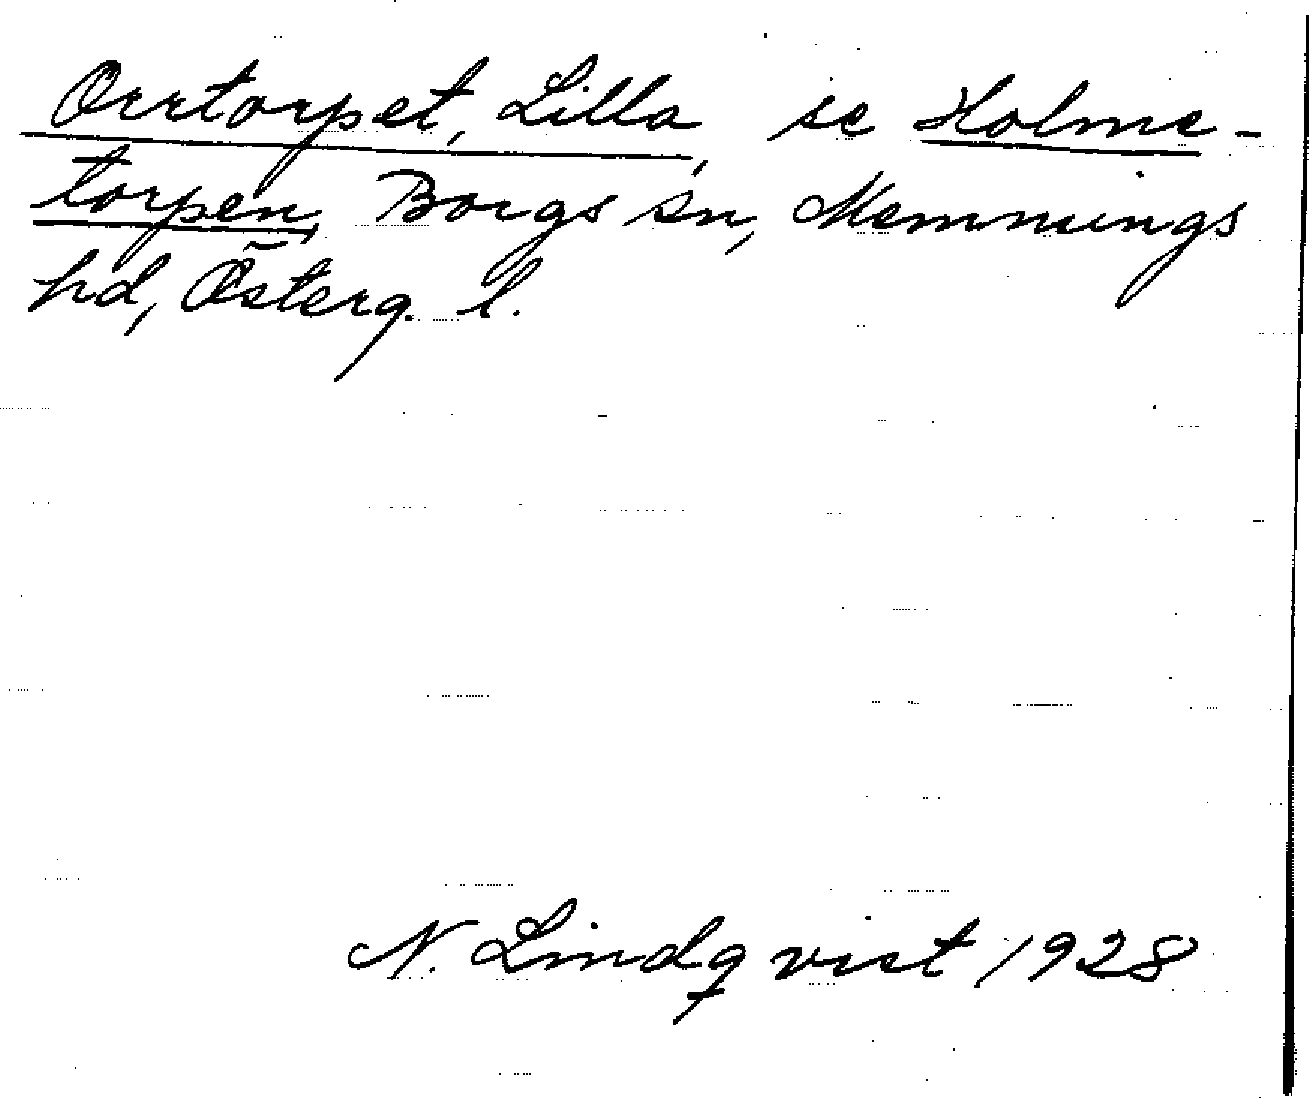 Orrtorpet, Lilla, se Holme-
torpen, Borgs sn, Memmings
hd, Österg. l.
N. Lindqvist 1928